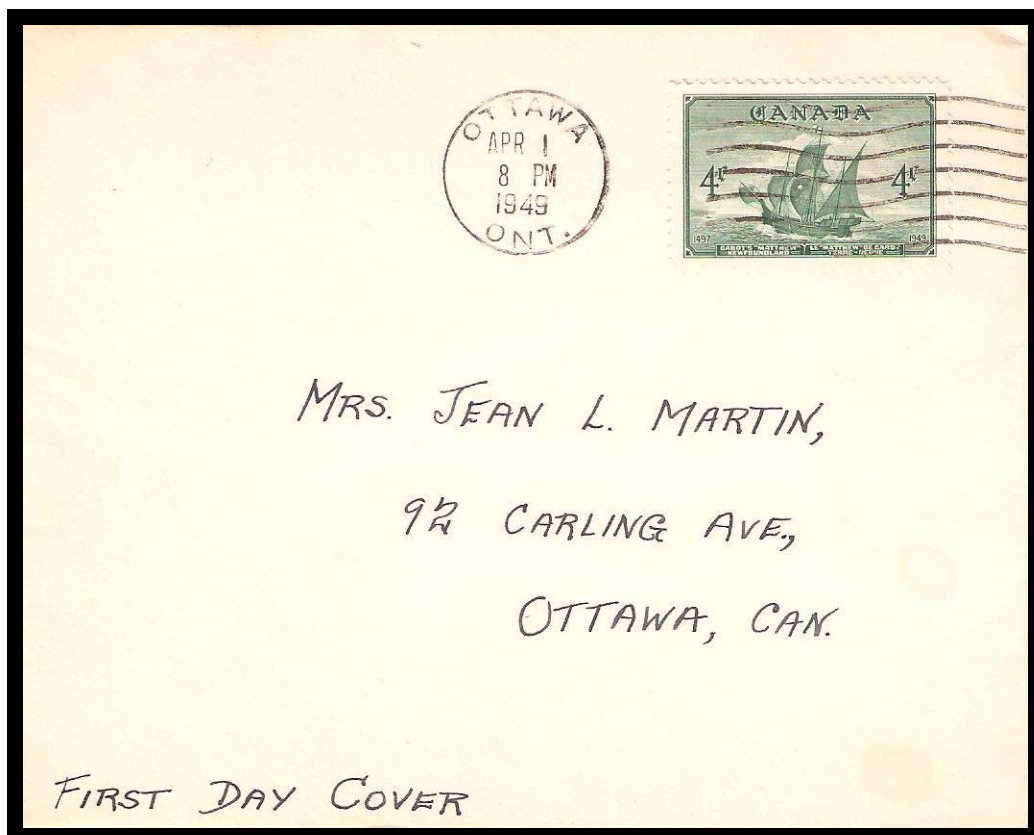 OTTAWA
APR 1
8 PM
1949
ONT.
CANADA
4¢ 4¢
1497 1949
CABOT'S "MATTHEW" LE "MATTHEW" DE CABOT
NEWFOUNDLAND TERRE-NEUVE
MRS. JEAN L. MARTIN,
92 CARLING AVE.,
OTTAWA, CAN.
FIRST DAY COVER